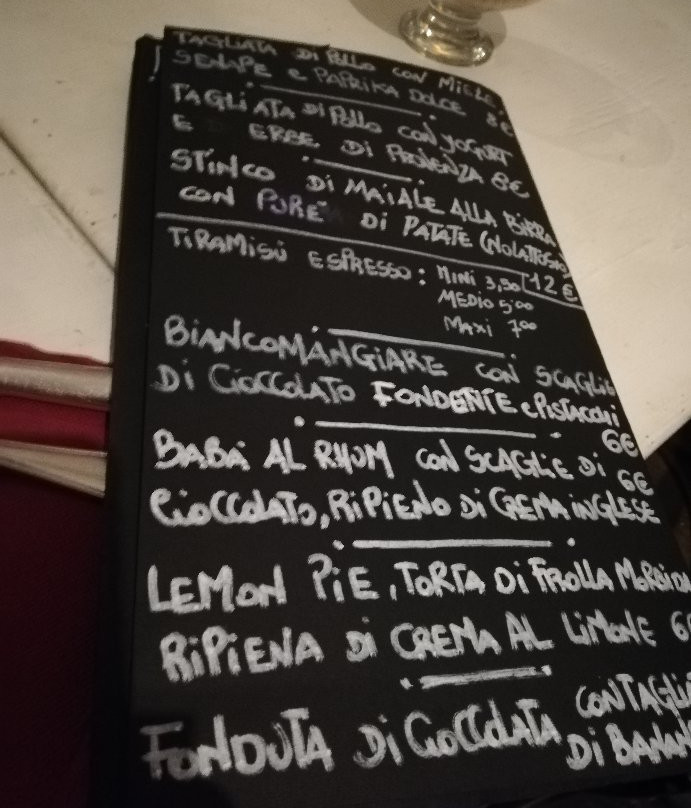 TAGLIATA DI POLLO CON MIELE,
SENAPE e PAPRIKA DOLCE 8€
TAGLIATA DI POLLO CON YOGURT
E ERBE DI PROVENZA 8€
STINCO DI MAIALE ALLA BIRRA
CON PURE' DI PATATE (NO LATTOSIO)
12€
TIRAMISÙ ESPRESSO: MINI 3,50
MEDIO 5,00
MAXI 7,00
BIANCOMANGIARE CON SCAGLIE
DI CIOCCOLATO FONDENTE e PISTACCHI
6€
BABÀ AL RHUM CON SCAGLIE DI
CIOCCOLATO, RIPIENO DI CREMA INGLESE
6€
LEMON PIE, TORTA DI FROLLA MORBIDA
RIPIENA DI CREMA AL LIMONE 6€
FONDUTA DI CIOCCOLATA CON TAGLIO
DI BANAN